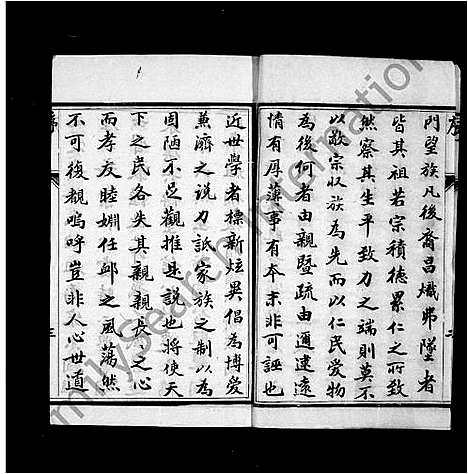 門望族凡後裔昌熾弗墜者
皆其祖若宗積德累仁之所致
然察其生平致力之端則莫不
以敬宗收族為先而以仁民愛物
為後何者由親暨疏由邇逮遠
情有厚薄事有本末非可誣也
近世學者標新炫異倡為博愛
兼濟之說力詆家族之制以為
固陋不足觀推是說也將使天
下之民各失其親親長長之心
而孝友睦婣任卹之風蕩然
不可復覩嗚呼豈非人心世道
序
二
三
FamilySearch International